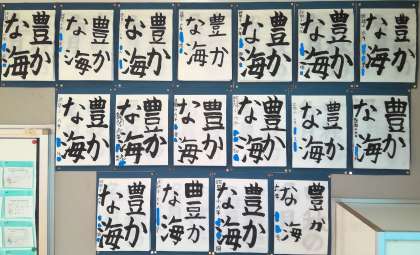 豊か
な海
豊か
な海
豊か
な海
豊か
な海
豊か
な海
豊か
な海
豊か
な海
豊か
な海
豊か
な海
豊か
な海
豊か
な海
豊か
な海
豊か
な海
豊か
な海
豊か
な海
豊か
な海
豊か
な海